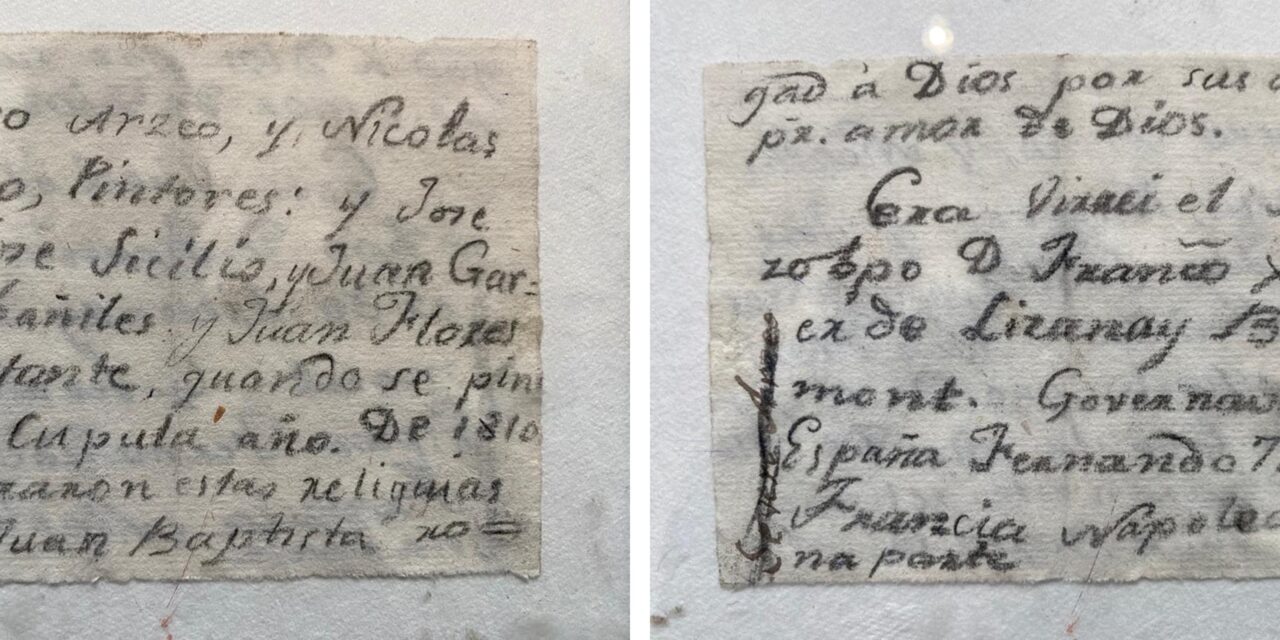 so Arzeo, y Nicolas
o, Pintores: y Jose
ose Sicilio, y Juan Gar=
bañiles y Juan Flores
tante, quando se pin
Cupula año. De 1810
raron estas reliquias
Juan Baptista ro=
gad à Dios por sus
pr. amor de Dios.
Era Virrei el
zobpo D Franco
er de Lizanay B
mont. Governav
España Fernando 7
Francia Napoleo
na parte